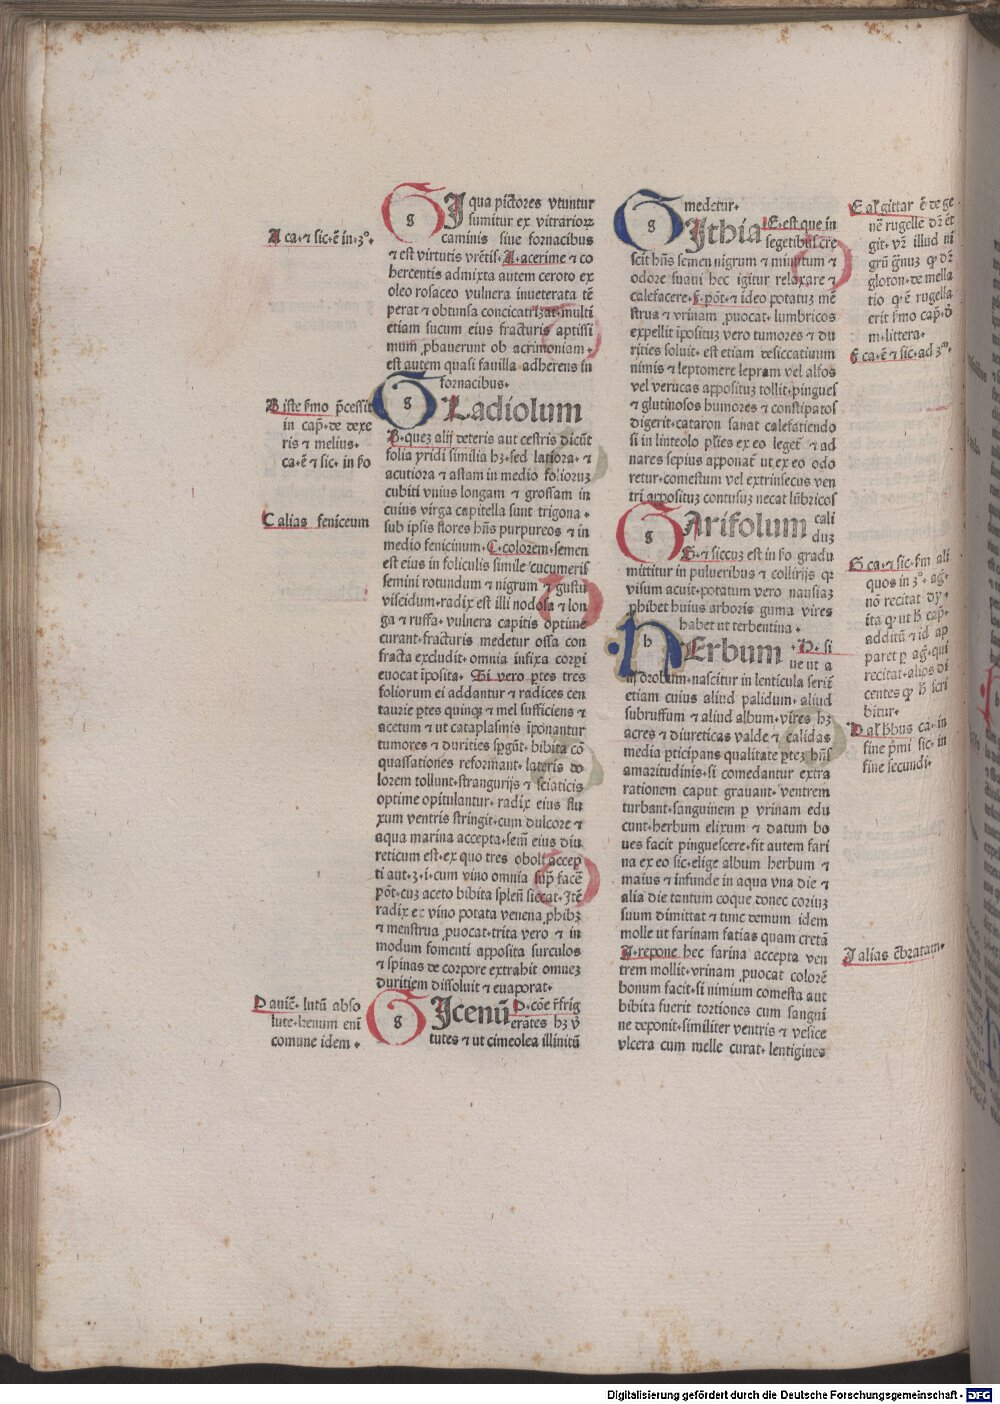 A ca·⁊ sic·ē in·3°·
B iste ſmo p̄ceſſit
in cap̄·de dexe
ris ⁊ melius·
ca·ē ⁊ sic· in ſo
C alias feniceum
D auic̄· lutū abso
lute·henum eni
comune idem·
g
I qua pictores vtuntur
ſumitur ex vitrarioꝝ
caminis ſiue fornacibus
⁊ est virtutis vrētis·A·acerime ⁊ co
hercentis admixta autem ceroto ex
oleo rosaceo vulnera inueterata tē
perat ⁊ obtunsa concicatrizat·multi
etiam ſucum eius fracturis aptissi
mum ꝓbauerunt ob acrimoniam·
est autem quasi fauilla adherens in
fornacibus·
g
Ladiolum
B·quez alij deteris aut cestris dicūt
folia yridi similia hꝫ·sed latiora· ⁊
acutiora ⁊ astam in medio folioruꝫ
cubiti vnius longam ⁊ grossam in
cuius virga capitella sunt trigona·
sub ipsis flores hn̄s purpureos ⁊ in
medio fenicinum·C·colorem·semen
est eius in foliculis simile cucumeris
semini rotundum ⁊ nigrum ⁊ gustu
viscidum·radix est illi nodosa ⁊ lon
ga ⁊ ruffa· vulnera capitis optime
curant·fracturis medetur ossa con
fracta excludit·omnia infixa corpi
euocat īposita· Si vero ꝑtes tres
foliorum ei addantur ⁊ radices cen
taurie ꝑtes quinqꝫ ⁊ mel sufficiens ⁊
acetum ⁊ ut cataplasmis īponantur
tumores ⁊ durities ſpgāt· bibita cō
quassationes reformant·lateris do
lorem tollunt·strangurijs ⁊ sciaticis
optime opitulantur· radix eius flu
xum ventris stringit·cum dulcore ⁊
aqua marina accepta·sem̄ eius diu
reticum est·ex quo tres oboli accep
ti aut·3·i·cum vino omnia sup̄ facē
pōt·cuꝫ aceto bibita splen̄ siccat·Itē
radix ex vino potata venena ꝓhibꝫ
⁊ menstrua ꝓuocat·trita vero ⁊ in
modum fomenti apposita surculos
⁊ spinas de corpore extrahit omneꝫ
duritiem dissoluit ⁊ euaporat·
g
Icenū D·cōe r̄frig
erates hꝫ v̄
tutes ⁊ ut cimeolea illinitū
g
medetur·
Ithia E·est que in
segetibus cre
scit hn̄s semen nigrum ⁊ minutum ⁊
odore suaui hec igitur relaxare ⁊
calefacere·F·pōt·⁊ ideo potatuꝫ mē
strua ⁊ vrinam ꝓuocat·lumbricos
expellit īpositus vero tumores ⁊ du
rities soluit· est etiam desiccatiuum
nimis ⁊ leptomere lepram vel alfos
vel verucas appositus tollit·pingues
⁊ glutinosos humores ⁊ constipatos
digerit·cataron sanat calefatiendo
si in linteolo pl̄ies ex eo leget̄ ⁊ ad
nares sepius apponat̄ ut ex eo odo
retur·comestum vel extrinsecus ven
tri appositus contusuꝫ necat lūbricos
g
Arifolum cali
duꝫ
G·⁊ siccuꝫ est in ſo gradu
mittitur in pulueribus ⁊ collirijs qꝛ
visum acuit·potatum vero nausiaꝫ
ꝓhibet huius arboris guma vires
habet ut terbentina·
h
Erbum ·D· si
ue ut a
lij orobum·nascitur in lenticula seriē
etiam cuius aliud palidum· aliud
subruffum ⁊ aliud album·vires hꝫ
acres ⁊ diureticas valde ⁊ calidas
media ꝑticipans qualitate ꝑteꝫ hn̄s
amaritudinis·si comedantur extra
rationem caput grauant· ventrem
turbant·sanguinem ꝑ vrinam edu
cunt·herbum elixum ⁊ datum bo
ues facit pinguescere·fit autem fari
na ex eo sic·elige album herbum ⁊
maius ⁊ infunde in aqua vna die ⁊
alia die tantum coque donec coriuꝫ
suum dimittat ⁊ tunc demum idem
molle ut farinam fatias quam cretā
I·repone hec farina accepta ven
trem mollit·vrinam ꝓuocat colorē
bonum facit·si nimium comesta aut
bibita fuerit tortiones cum sangui
ne deponit·similiter ventris ⁊ vesice
vlcera cum melle curat· lentigines
E al' gittar ē de ge
nē rugelle dꝛ ēt
git· vꝫ illud ni
grū g̃nuꝫ qꝰ dꝛ
gloton·de mella
tio qꝰ ē rugella
erit ſmo cap̄·ð
m·littera·
F ca·ē ⁊ sic·ad 3ᵐ·
G ca·⁊ sic·ſm ali
quos in 3°· ag̃·
nō recitat dy·
ita qꝰ ut h̄ cap̄·
additū ⁊ id ap
paret ꝑ ag̃·qui
recitat·alios di
centes qꝰ h̄ scri
bitur·
D al' h̄bus ca· in
fine pmi sic· in
fine secundi·
I alias c̄bratam·
Digitalisierung gefördert durch die Deutsche Forschungsgemeinschaft - DFG